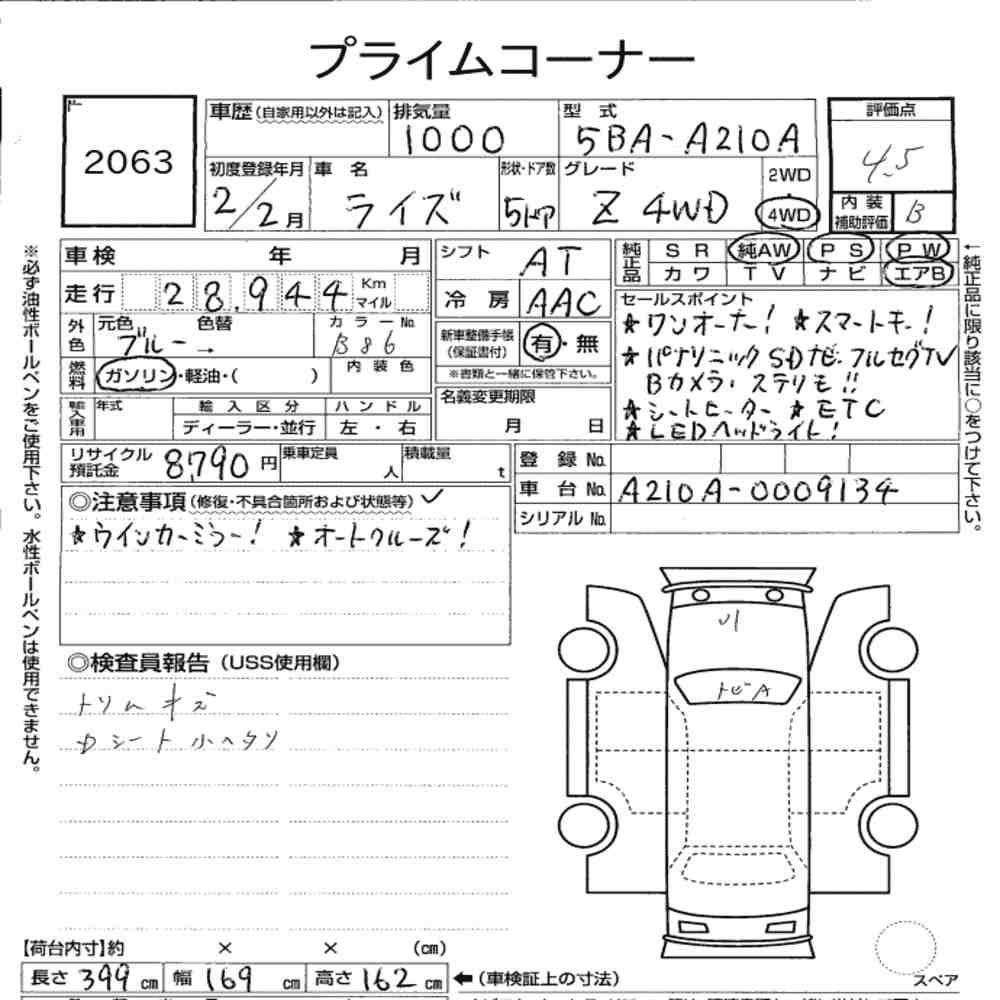 プライムコーナー
2063
車歴(自家用以外は記入)
排気量
1000
型 式
5BA-A210A
評価点
4.5
初度登録年月
2/2月
車 名
ライズ
形状・ドア数
5ドア
グレード
Z 4WD
2WD
4WD
内 装
補助評価
B
車検 年 月
シフト
AT
純正品
S R 純AW P S P W
カワ T V ナビ エアB
走行 28,944 Km
マイル
冷 房
AAC
セールスポイント
★ワンオーナー! ★スマートキー!
★パナソニックSDナビ・フルセグTV
Bカメラ・ステリモ!!
★シートヒーター ★ETC
★LEDヘッドライト!
外色
元色 色替
ブルー→
カラーNo.
B86
新車整備手帳
(保証書付)
有・無
※書類と一緒に保管下さい。
燃料
ガソリン・軽油・( )
内 装 色
名義変更期限
月 日
輸入車用
年式
輸 入 区 分
ハ ン ド ル
ディーラー・並行
左 ・ 右
リサイクル
預託金
8,790 円
乗車定員
人
積載量
t
登 録 No.
車 台 No.
A210A-0009134
シリアル No.
◎注意事項(修復・不具合箇所および状態等)✓
★ウインカーミラー! ★オートクルーズ!
◎検査員報告(USS使用欄)
トリムキズ
Dシート小ヘタリ
トビA
スペア
【荷台内寸】約 × × (cm)
長さ 399 cm 幅 169 cm 高さ 162 cm ←(車検証上の寸法)
※必ず油性ボールペンをご使用下さい。水性ボールペンは使用できません。
←純正品に限り該当に○をつけて下さい。